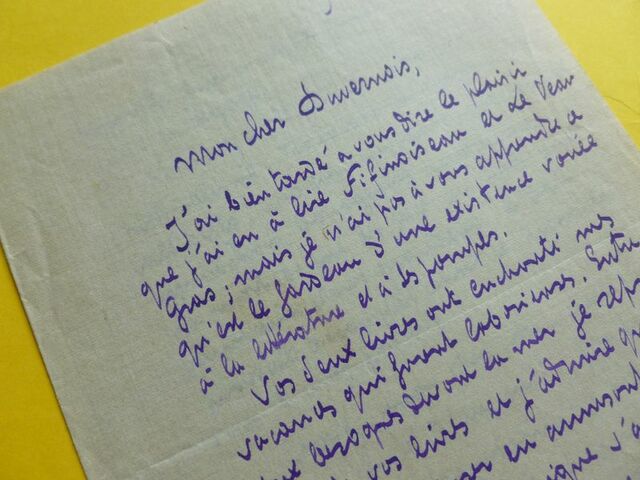 Mon cher Duvernois,
J'ai bien tardé à vous dire le plaisir
que j'ai eu à lire Fifinoiseau et Le Veau
Gras; mais je n'ai pas à vous apprendre ce
qu'est le fardeau d'une existence vouée
à la littérature et à ses pompes.
Vos deux livres ont enchanté mes
vacances qui furent laborieuses. Entre
deux besognes devant la mer je repr
vos livres et j'admire qu
en amusant